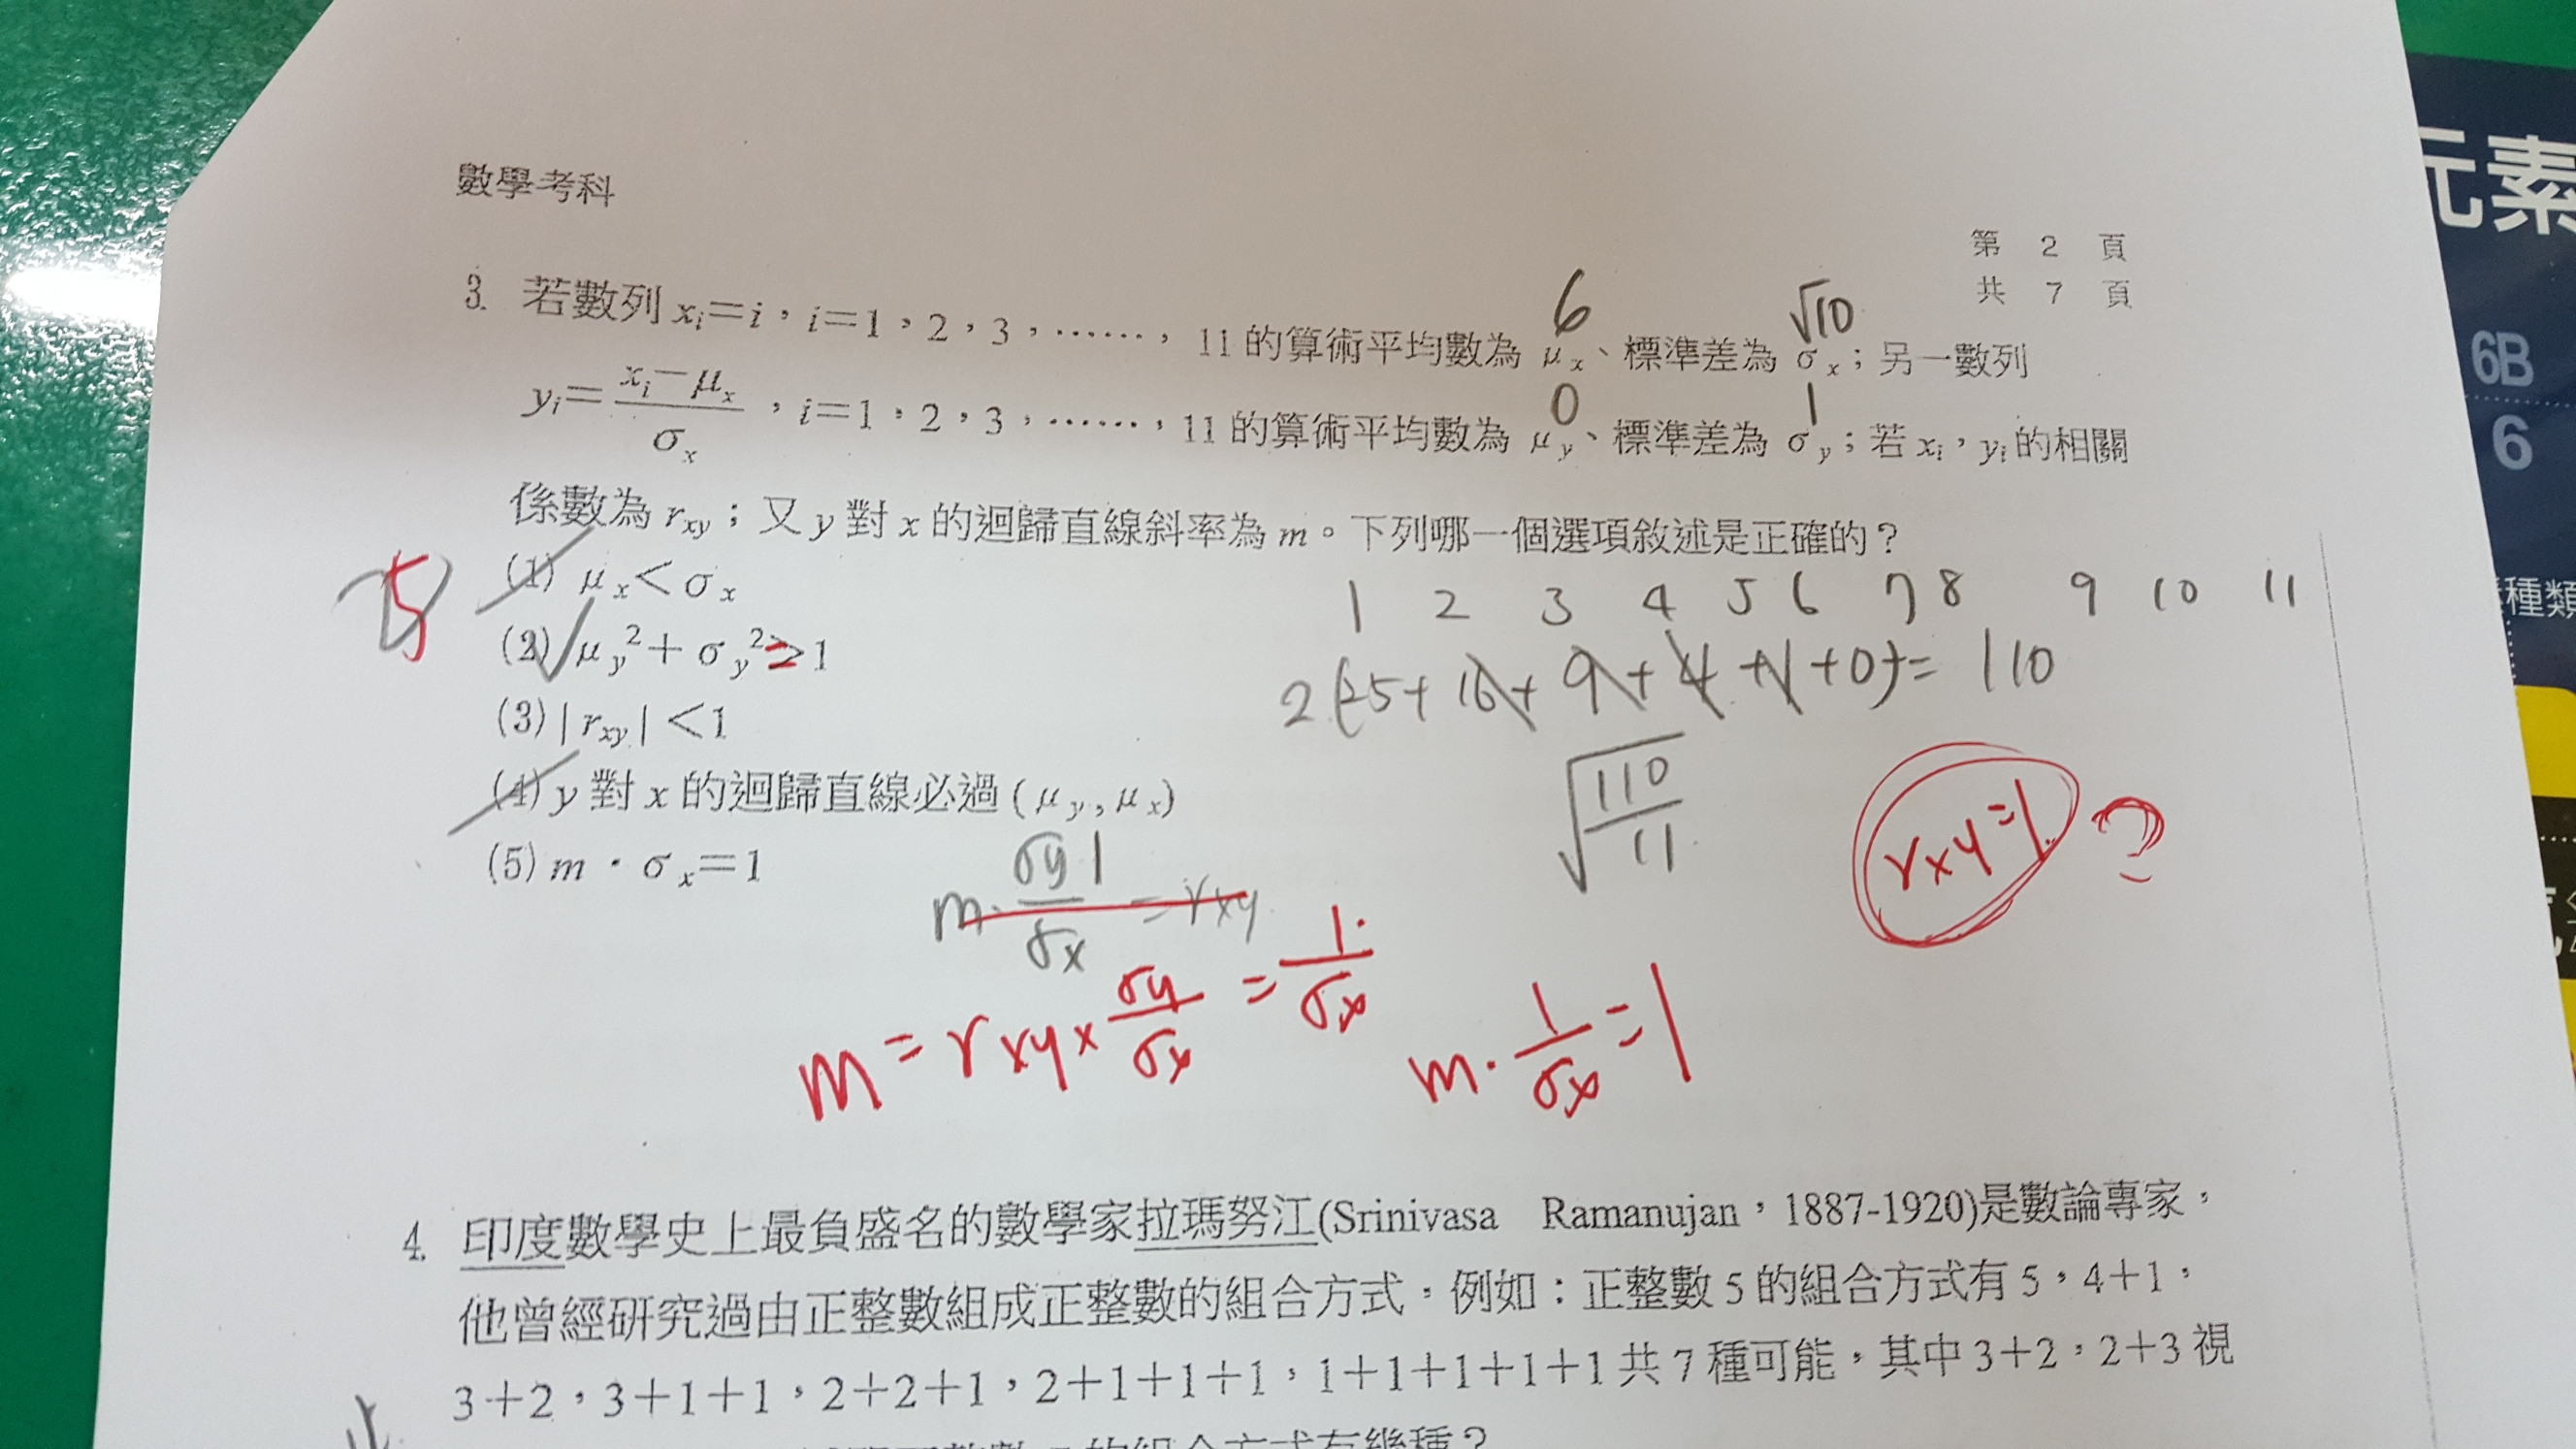 數學考科
第 2 頁
共 7 頁
元素
6B
6
種類
6 √10
3. 若數列 xᵢ=i,i=1,2,3,……,11 的算術平均數為 μₓ、標準差為 σₓ;另一數列
0 1
yᵢ=(xᵢ-μₓ)/σₓ,i=1,2,3,……,11 的算術平均數為 μ_y、標準差為 σ_y;若 xᵢ,yᵢ 的相關
係數為 r_xy;又 y 對 x 的迴歸直線斜率為 m。下列哪一個選項敘述是正確的?
5
(1) μₓ<σₓ
1 2 3 4 5 6 7 8 9 10 11
(2) μ_y²+σ_y²>1
2(25+16+9+4+1+0)=110
(3) |r_xy|<1
(4) y 對 x 的迴歸直線必過(μ_y,μₓ)
√(110/11)
rxy=1 ?
(5) m・σₓ=1
m・σy/σx=rxy
1
m=rxy×σy/σx=1/σx
m・1/σx=1
4. 印度數學史上最負盛名的數學家拉瑪努江(Srinivasa Ramanujan,1887-1920)是數論專家,
他曾經研究過由正整數組成正整數的組合方式。例如:正整數 5 的組合方式有 5,4+1,
3+2,3+1+1,2+2+1,2+1+1+1,1+1+1+1+1 共 7 種可能,其中 3+2,2+3 視
的組合方式有幾種?